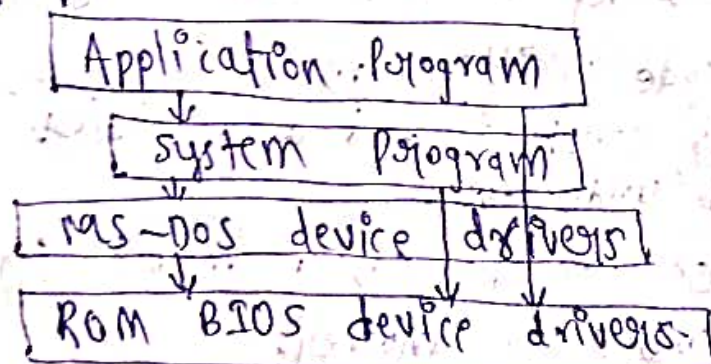 Application Program
system Program
MS-DOS device drivers
ROM BIOS device drivers